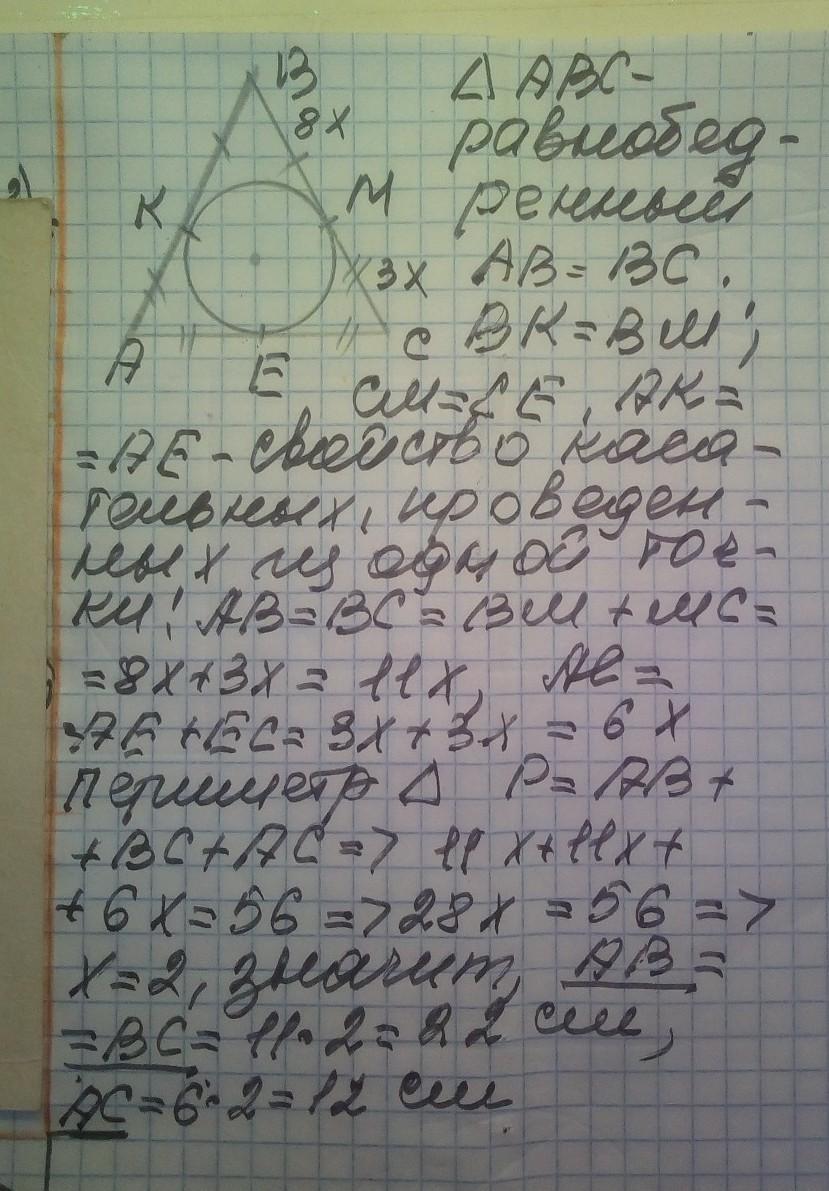 B
8x
K
M
3x
A
E
C
Δ ABC-
равнобед-
ренный
AB = BC.
BK = BM;
CM = CE, AK =
= AE - свойство каса-
тельных, проведен-
ных из одной точ-
ки! AB = BC = BM + MC =
= 8x + 3x = 11x, AC =
= AE + EC = 3x + 3x = 6x
Периметр Δ P = AB +
+ BC + AC => 11x + 11x +
+ 6x = 56 => 28x = 56 =>
x = 2, значит, AB =
= BC = 11·2 = 22 см,
AC = 6·2 = 12 см